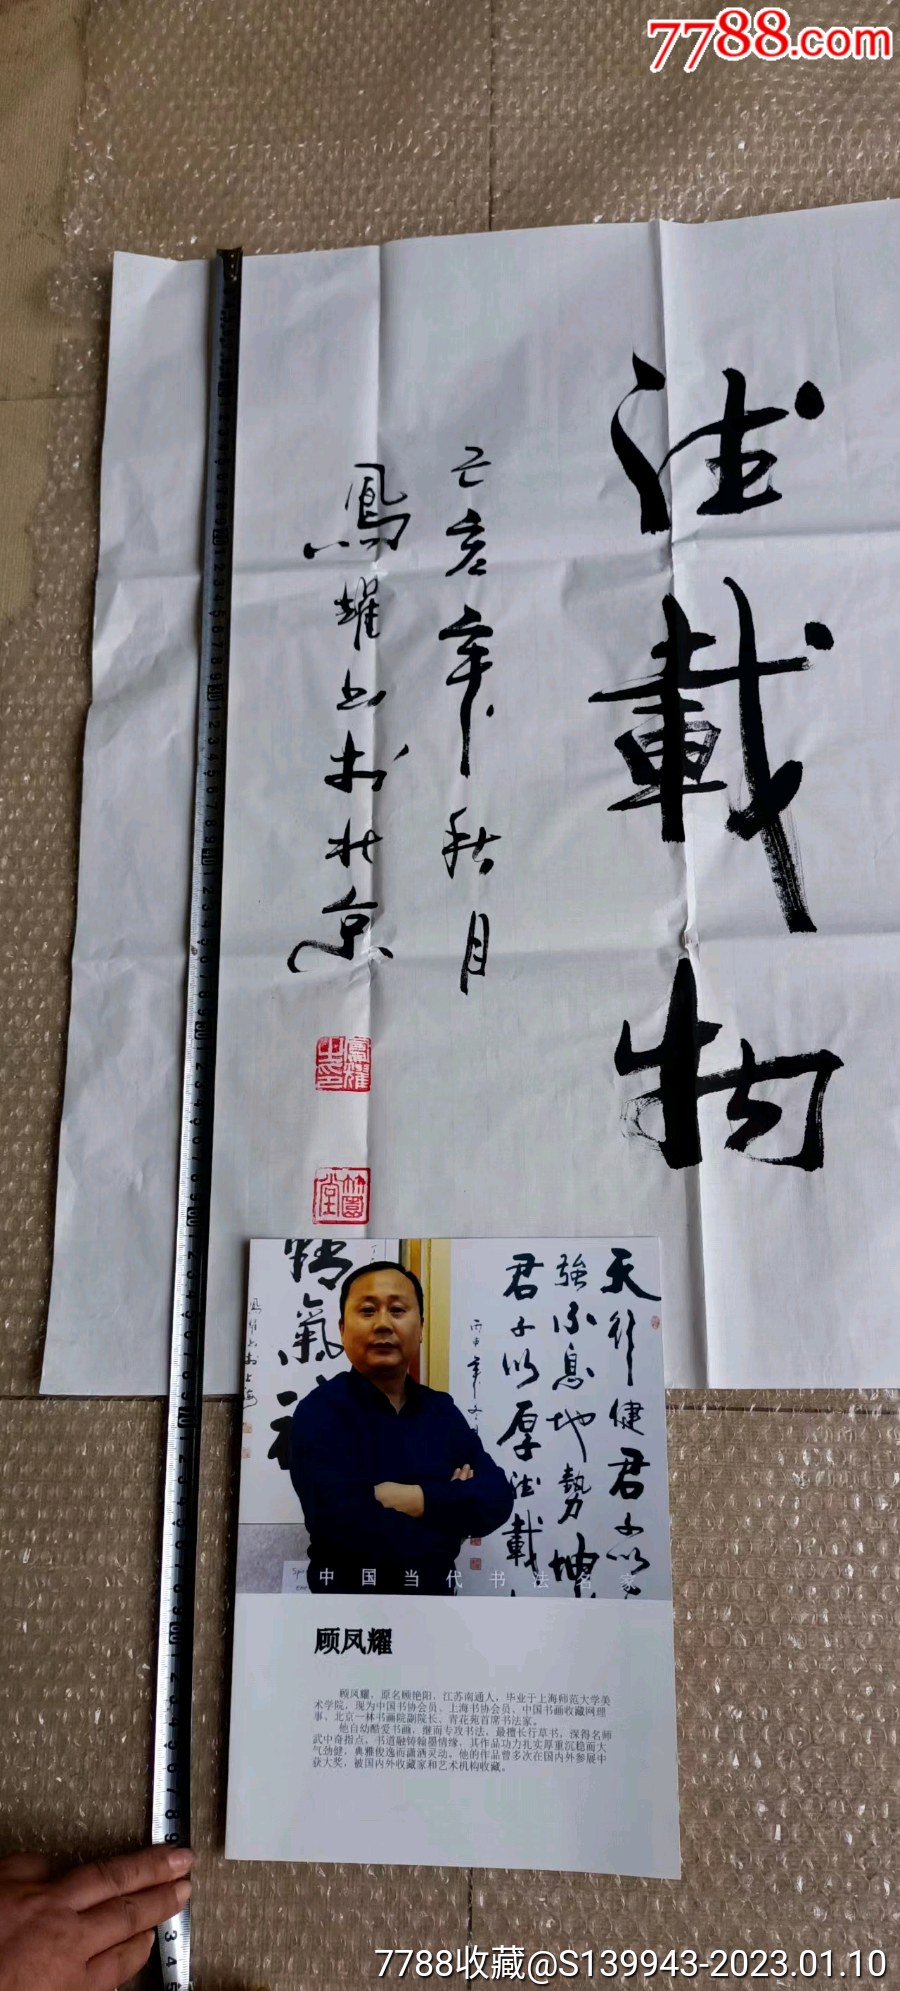 7788.com
德載物
己亥年秋月
鳳耀书於北京
天行健君子以
強不息地勢坤
君子以厚德載
丙申年
精氣神
中国当代书法名家
顾凤耀
顾凤耀，原名顾艳阳，江苏南通人，毕业于上海师范大学美
术学院，现为中国书协会员、上海书协会员、中国书画收藏网理
事、北京一林书画院副院长、青花苑首席书法家。
他自幼酷爱书画，继而专攻书法，最擅长行草书，深得名师
武中奇指点，书道融铸翰墨情缘，其作品功力扎实厚重沉稳而大
气劲健，典雅俊逸而潇洒灵动。他的作品曾多次在国内外参展中
获大奖，被国内外收藏家和艺术机构收藏。
7788收藏@S139943-2023.01.10